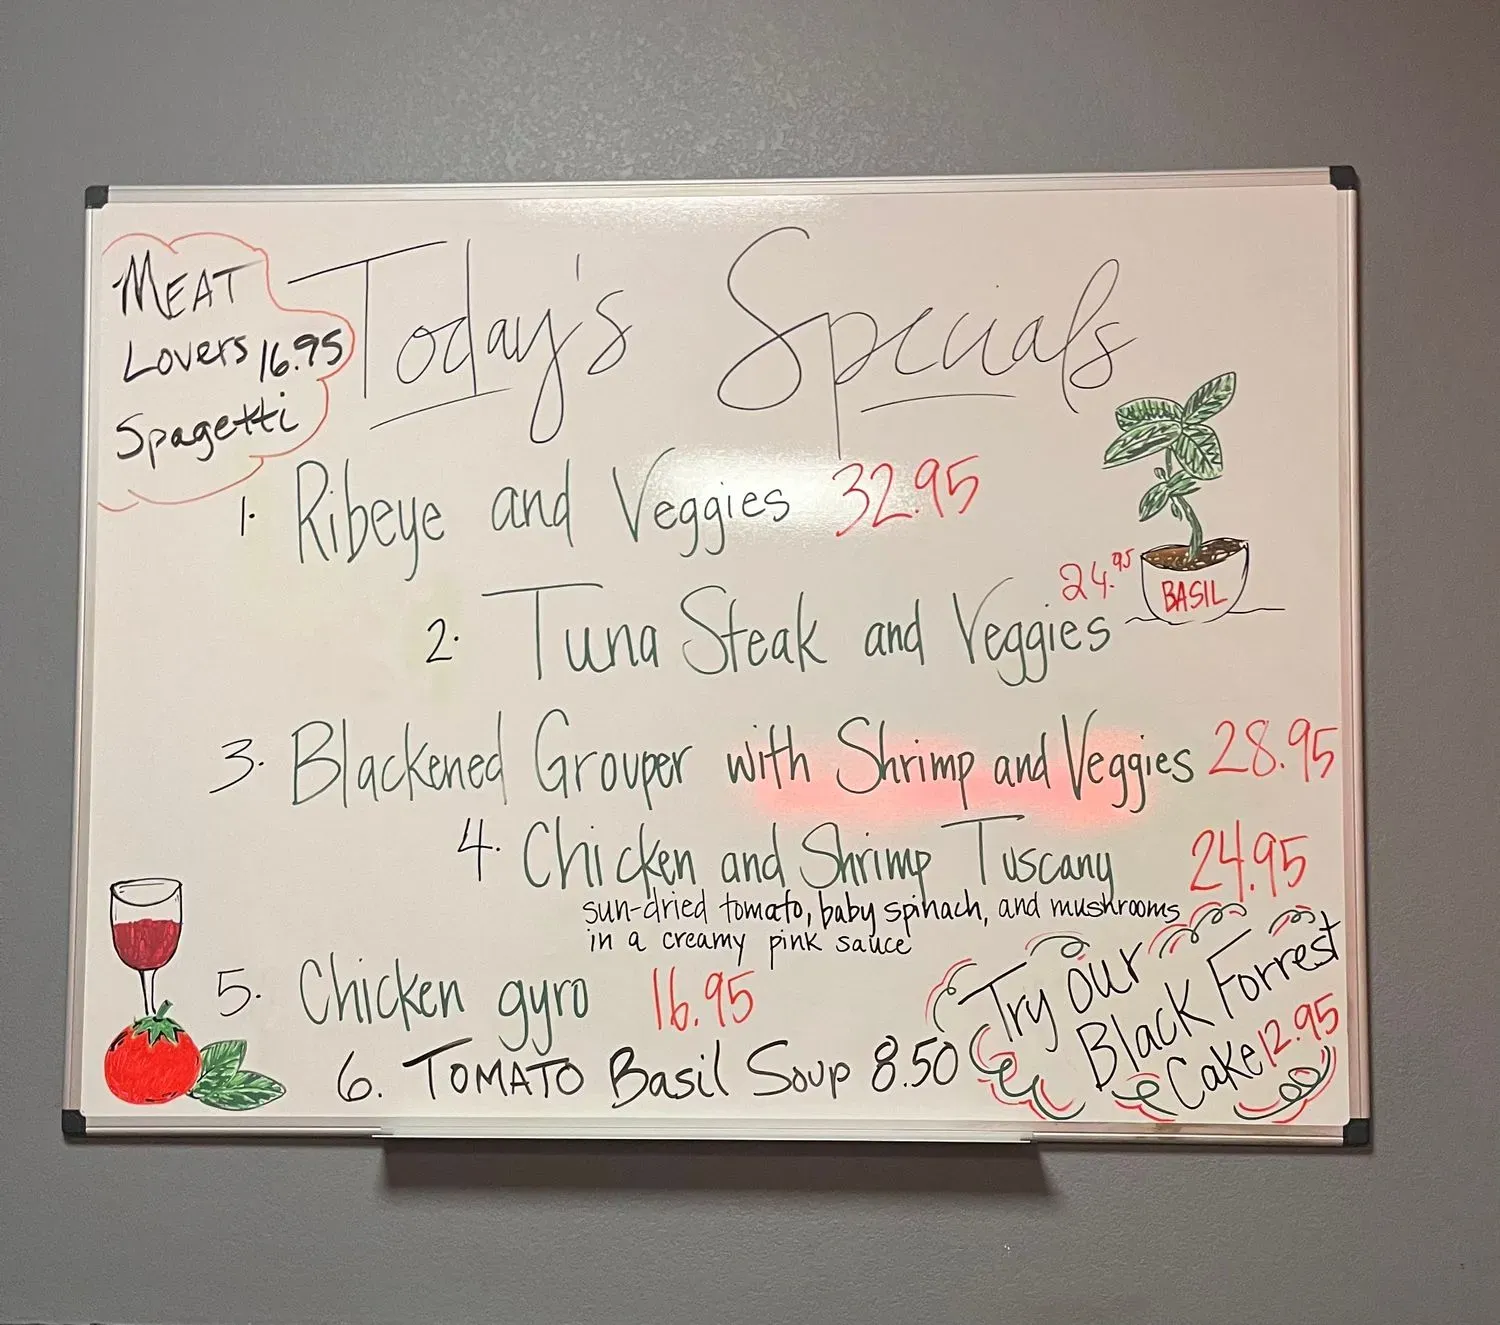 Today's Specials
MEAT
Lovers 16.95
Spagetti
1. Ribeye and Veggies 32.95
2. Tuna Steak and Veggies 24.95
BASIL
3. Blackened Grouper with Shrimp and Veggies 28.95
4. Chicken and Shrimp Tuscany 24.95
sun-dried tomato, baby spinach, and mushrooms
in a creamy pink sauce
5. Chicken gyro 16.95
6. TOMATO Basil Soup 8.50
Try Our
Black Forrest
Cake 12.95